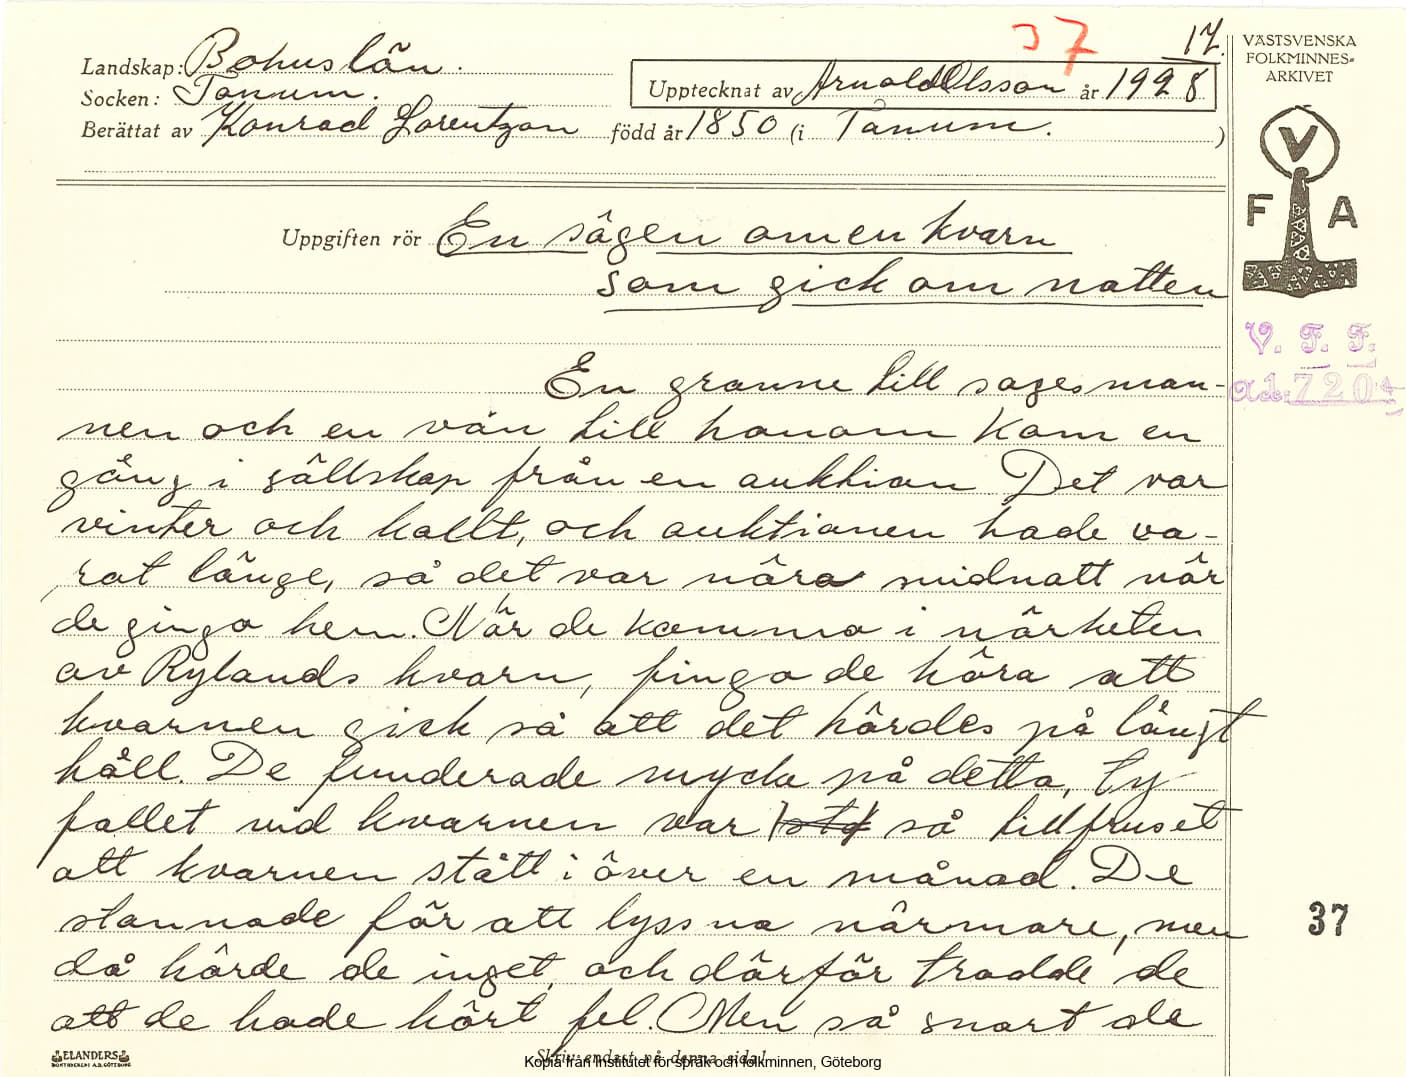 37 17.
Landskap: Bohuslän.
Socken: Tanum.
Upptecknat av Arnold Olsson år 1928
Berättat av Konrad Lorentzon född år 1850 (i Tanum.)
VÄSTSVENSKA
FOLKMINNES-
ARKIVET
V
F A
Uppgiften rör En sägen om en kvarn
som gick om natten
V. F. F.
En granne till sagesman-
nen och en vän till honom kom en
gång i sällskap från en auktion Det var
vinter och kallt, och auktionen hade va-
rat länge, så det var nära midnatt när
de gingo hem. När de kommo i närheten
av Rylands kvarn, fingo de höra att
kvarnen gick så att det hördes på långt
håll. De funderade mycke på detta, ty
fallet vid kvarnen var så tillfruset
att kvarnen stått i över en månad. De
stannade för att lyssna närmare, men
37
då hörde de inget, och därför trodde de
att de hade hört fel. Men så snart de
ELANDERS
BOKTRYCKERI A.B. GÖTEBORG
Skriv endast på denna sida!
Kopia från Institutet för språk och folkminnen, Göteborg